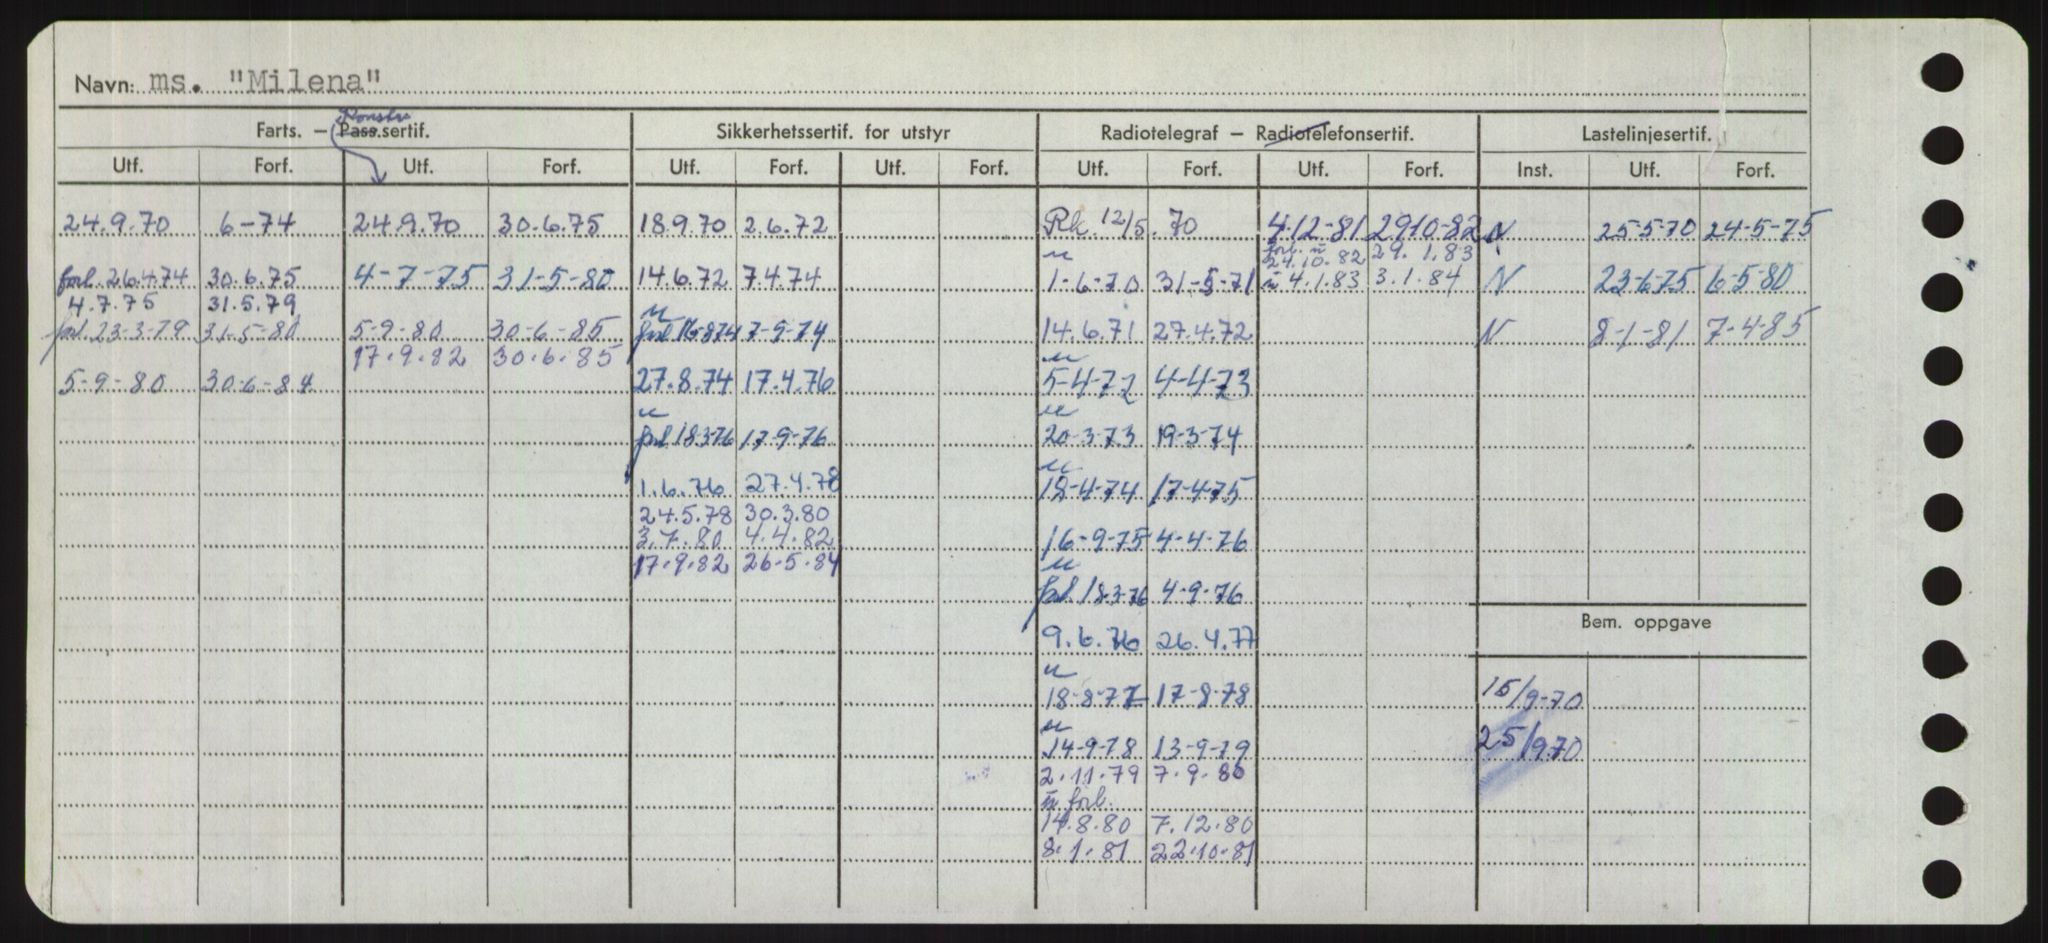 Navn: ms. "Milena"
Konstr.
Farts. — Pass.sertif. Sikkerhetssertif. for utstyr Radiotelegraf — Radiotelefonsertif. Lastelinjesertif.
Utf. Forf. Utf. Forf. Utf. Forf. Utf. Forf. Utf. Forf. Utf. Forf. Inst. Utf. Forf.
24.9.70 6-74 24.9.70 30.6.75 18.9.70 2.6.72 Rk. 12/5.70 4-12-81 29-10-82 N 25-5-70 24-5-75
forl. u 24.10.82 29.1.83
forl. 26.4.74 30.6.75 4-7-75 31-5-80 14.6.72 7.4.74 u 1-6-70 31-5-71 u 4.1.83 3.1.84 N 23-6-75 6-5-80
4.7.75 31.5.79
forl. 23-3-79 31-5-80 5-9-80 30-6-85 u forl 16-8-74 7-9-74 14.6.71 27.4.72 N 8-1-81 7-4-85
17.9.82 30.6.85
5-9-80 30-6-84 27.8.74 17.4.76 u 5-4-72 4-4-73
u forl 18-3-76 17-9-76 u 20-3-73 19-3-74
1.6.76 27.4.78 u 18-4-74 17-4-75
24.5.78 30.3.80
3.7.80 4.4.82 16-9-75 4-4-76
17.9.82 26.5.84
u forl. 18-3-76 4-9-76
Bem. oppgave
9.6.76 26.4.77
u 18-8-77 17-8-78 15/9-70
u 14-9-78 13-9-79 25/9 70
2.11.79 7.9.80
u forl.
14.8.80 7.12.80
8.1.81 22.10.81